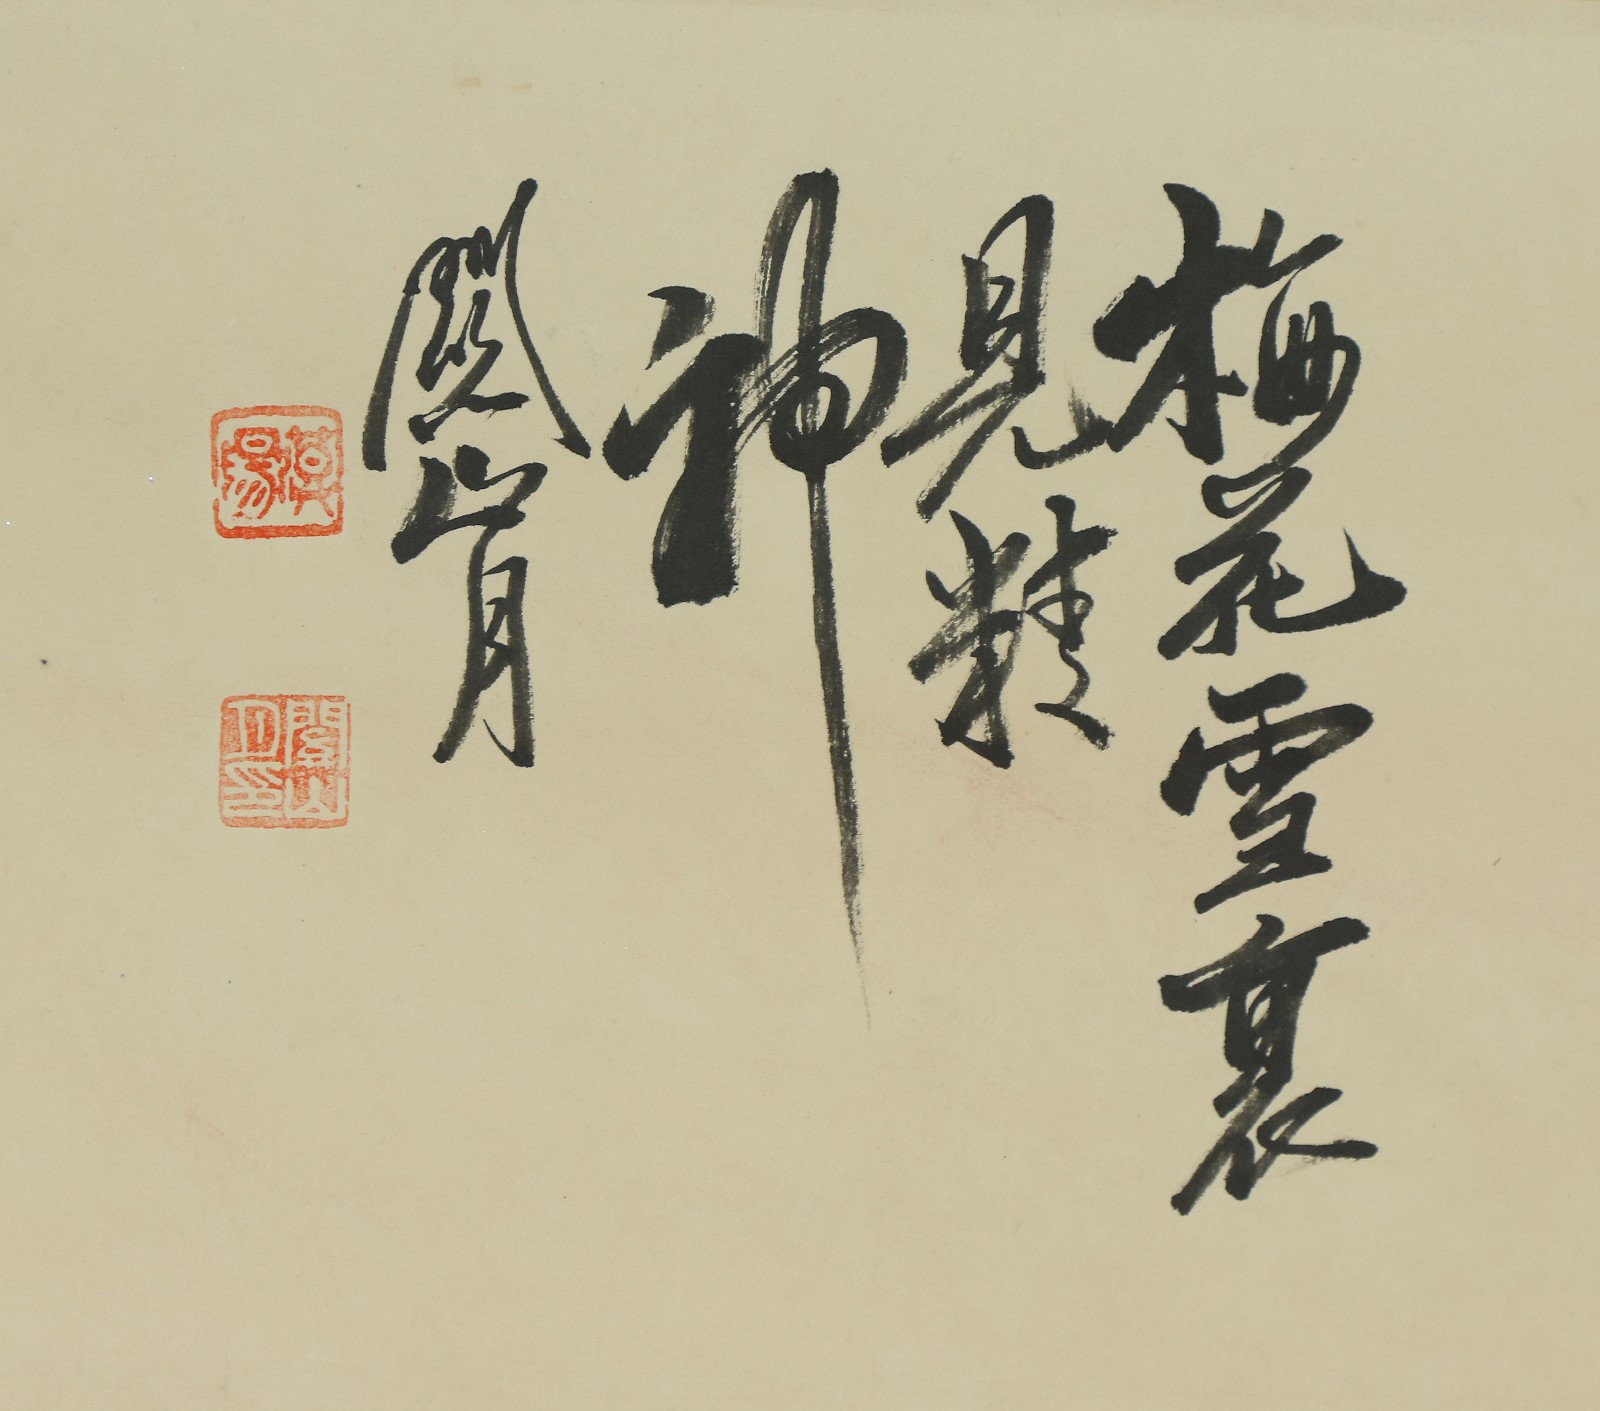 梅花雪裏
見精
神
關山月
關山月印